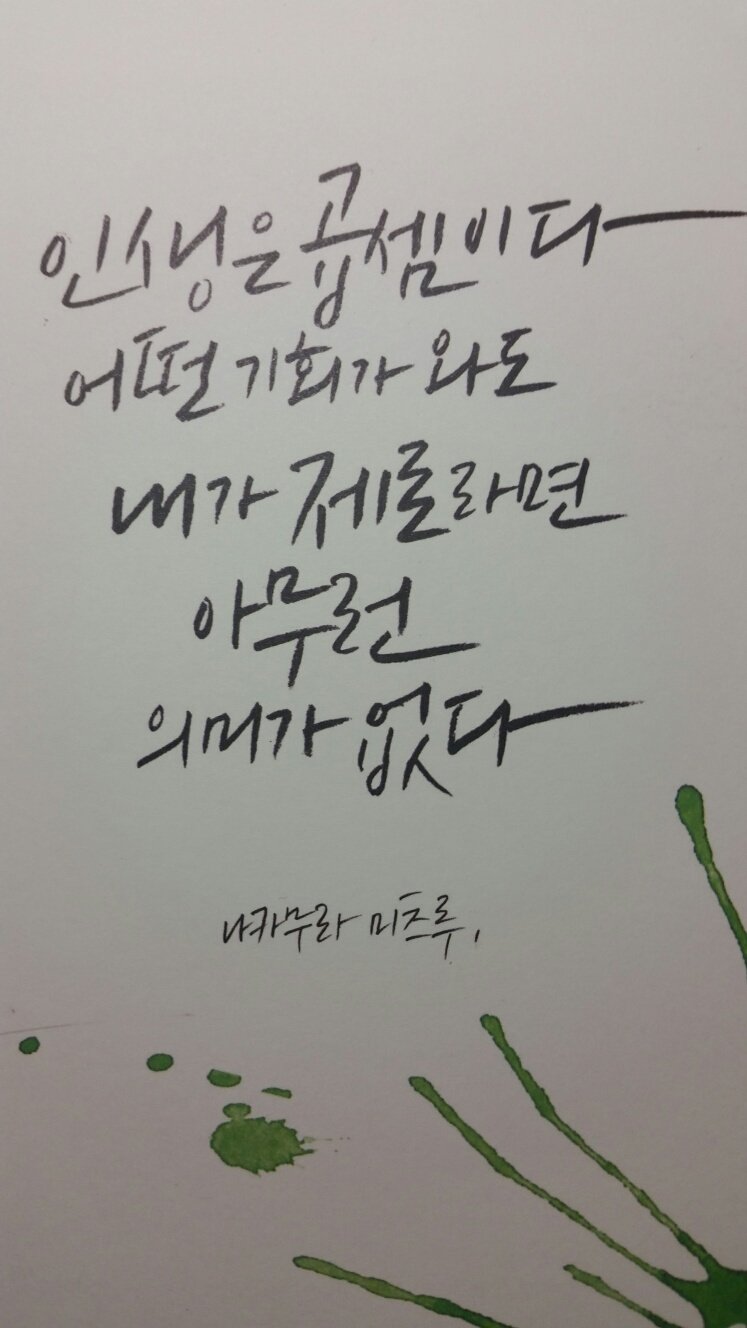 인생은 곱셈이다
어떨 기회가 와도
내가 제로라면
아무런
의미가 없다
나카무라 미츠루.